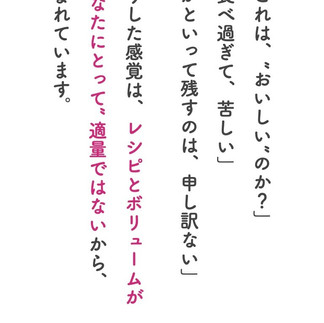 これは、“おいしい”のか？」
食べ過ぎて、苦しい」
かといって残すのは、申し訳ない」
した感覚は、レシピとボリュームが
なたにとって“適量ではないから、
まれています。